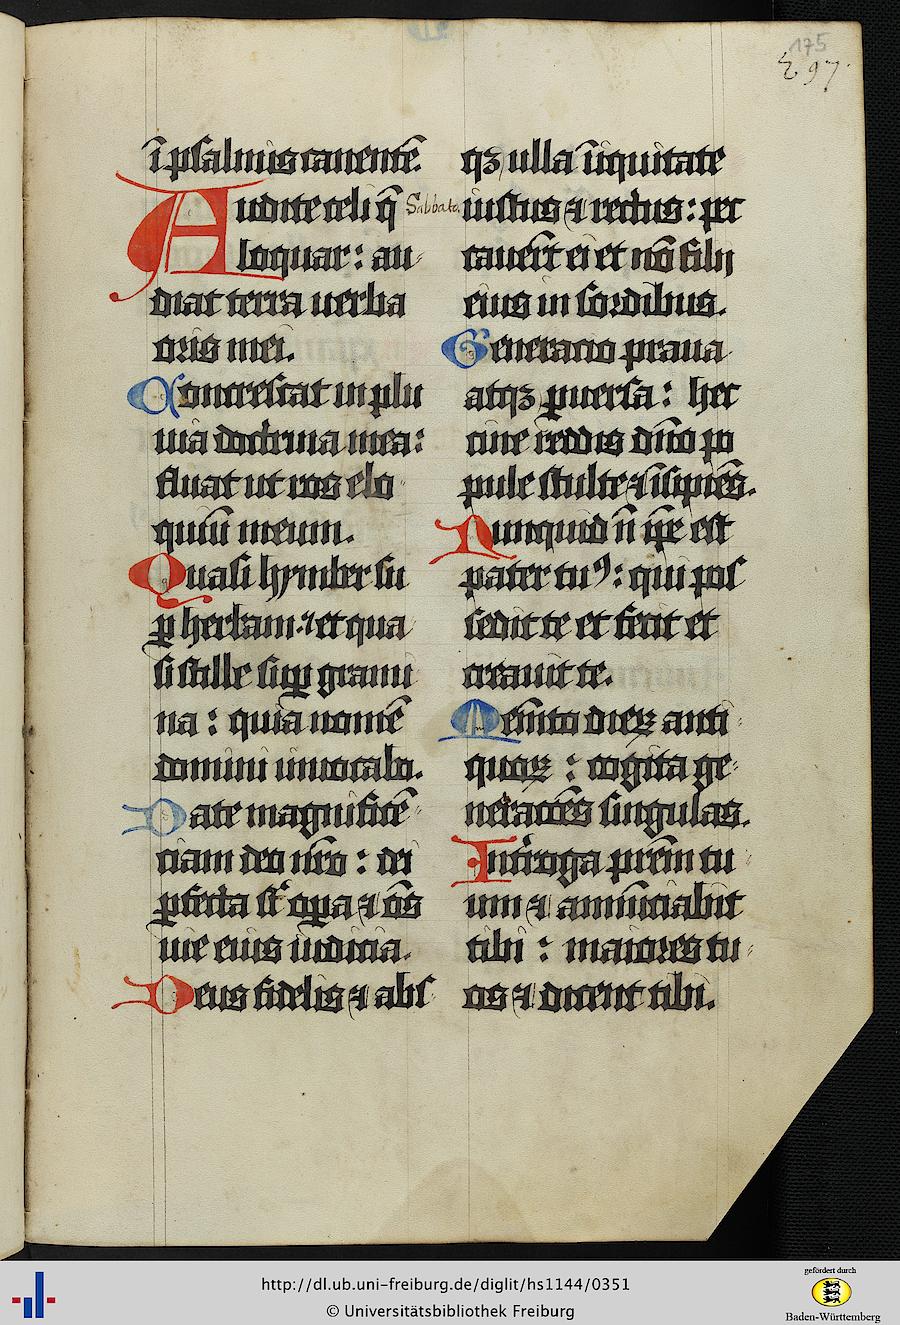 175
297
ī psalmis canentē.
Audite celi q̄
Sabbato
loquar : au⸗
diat terra uerba
oris mei.
Concrescat in plu
uia doctrina mea :
fluat ut ros elo⸗
quiū meum.
Quasi hymber su
ꝑ herbam : et qua
si stille suꝑ grami
na : quia nomē
domini inuocabo.
Date magnificē⸗
ciam deo nr̄o : dei
ꝑfecta st̄ oꝑa ⁊ ōs
uie eius iudicia.
Deus fidelis ⁊ abs⸗
qꝫ ulla īiquitate
iustus ⁊ rectus : pec
cauer̄t ei et nō filij
eius in sordibus.
Generacio praua
atqꝫ ꝑuersa : hec
cine reddis dn̄o po
pule stulte ⁊ īsipiēs.
Nunquid n̄ ip̄e est
pater tuꝰ : qui pos
sedit te et fecit et
creauit te.
Memēto dieꝝ anti⸗
quoꝝ : cogita ge⸗
neracōēs singulas.
Int̄roga prēm tu
um ⁊ annūciabit
tibi : maiores tu⸗
os ⁊ dicent tibi.
http://dl.ub.uni-freiburg.de/diglit/hs1144/0351
© Universitätsbibliothek Freiburg
gefördert durch
Baden-Württemberg